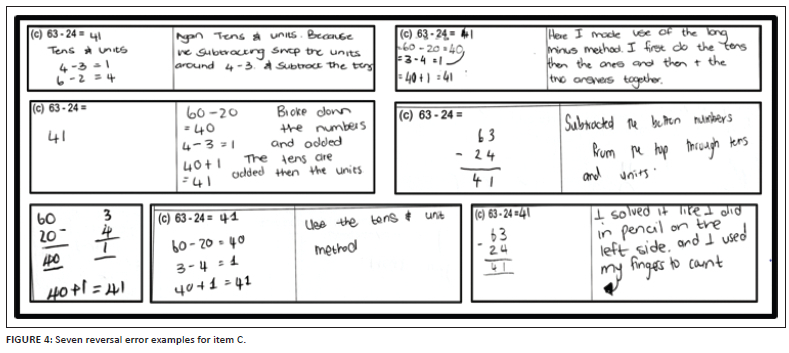 (c) 63 - 24 = 41
Tens & units
4 - 3 = 1
6 - 2 = 4
Again Tens & units. Because
we subtracting swop the units
around 4 - 3. & Subtract the tens
(c) 63 - 24 = 41
60 - 20 = 40
3 - 4 = 1
= 40 + 1 = 41
Here I made use of the long
minus method. I first do the tens
then the ones and then + the
two answers together.
(c) 63 - 24 =
41
60 - 20
= 40
4 - 3 = 1
40 + 1
= 41
Broke down
the numbers
and added
The tens are
added then the units
(c) 63 - 24 =
63
- 24
41
Subtracted the bottom numbers
from the top through tens
and units.
60
20 -
40
3
4
1
40 + 1 = 41
(c) 63 - 24 = 41
60 - 20 = 40
3 - 4 = 1
40 + 1 = 41
Use the tens & unit
method
(c) 63 - 24 = 41
63
- 24
41
I solved it like I did
in pencil on the
left side. and I used
my fingers to count
FIGURE 4: Seven reversal error examples for item C.